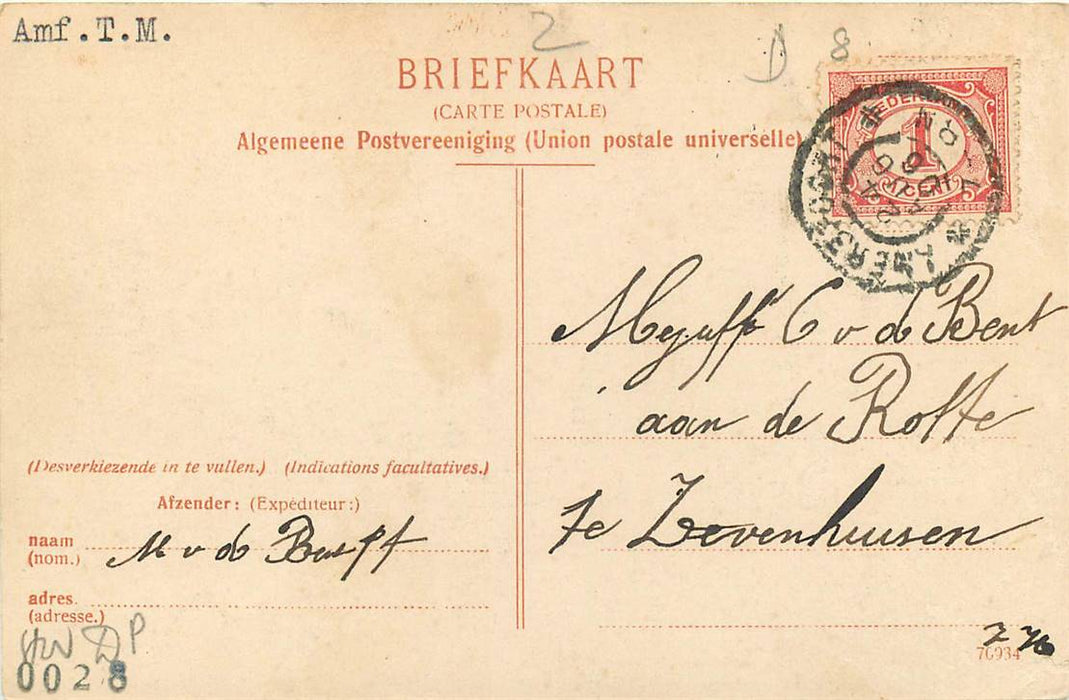 Amf.T.M.
2
D 8
BRIEFKAART
(CARTE POSTALE)
Algemeene Postvereeniging (Union postale universelle)
NEDERLAND
1
CENT
Mejuff C v d Bent
aan de Rotte
te Zevenhuisen
(Desverkiezende in te vullen.) (Indications facultatives.)
Afzender: (Expéditeur:)
naam M v d
(nom.)
adres.
(adresse.)
DP
0028
76934